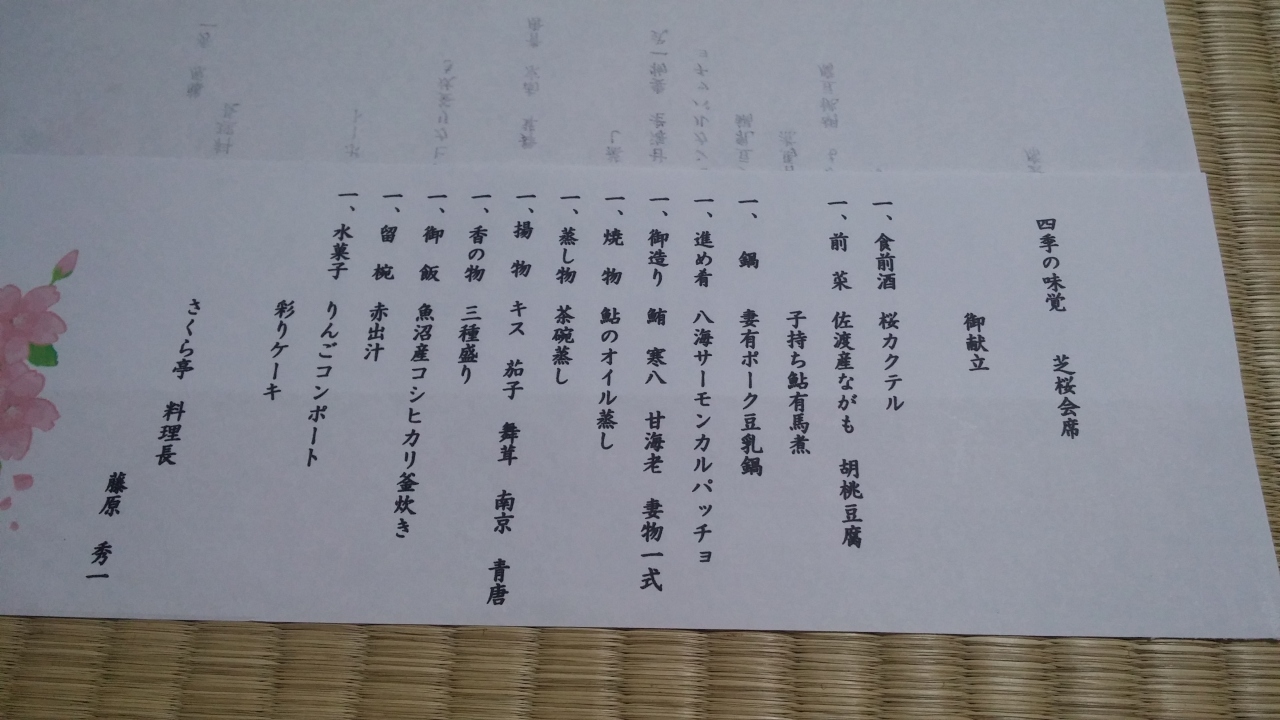 四季の味覚 芝桜会席
御献立
一、食前酒 桜カクテル
一、前菜 佐渡産ながも 胡桃豆腐
子持ち鮎有馬煮
一、鍋 妻有ポーク豆乳鍋
一、進め肴 八海サーモンカルパッチョ
一、御造り 鮪 寒八 甘海老 妻物一式
一、焼物 鮎のオイル蒸し
一、蒸し物 茶碗蒸し
一、揚物 キス 茄子 舞茸 南京 青唐
一、香の物 三種盛り
一、御飯 魚沼産コシヒカリ釜炊き
一、留椀 赤出汁
一、水菓子 りんごコンポート
彩りケーキ
さくら亭 料理長
藤原 秀一